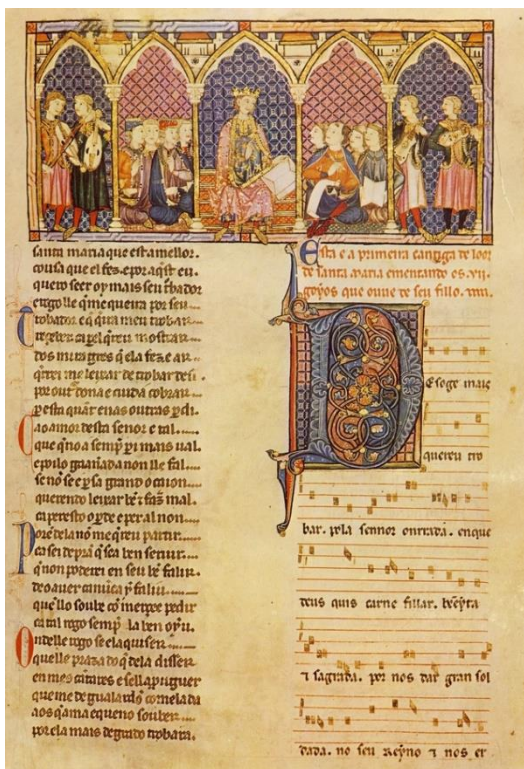 santa maria que est a mellor.
cousa que el fez. e por aqst eu.
quero seer oy mais seu trobador
e rogo lle q me queira por seu
Trobador e q q̇ira meu trobar
reçeber ca per el q̇rreu mostrar
dos miragres q ela fez. e ar
q̇rrei me leixar de trobar desi.
por outra dona e cuid a cobrar
per esta quant enas outras pdi.
Ca o amor desta sennor e tal....
que q̇no a sempr p i mais ual.
e poilo gaannada non lle fal....
se nō se e p sa grand ocaion.
querendo leixar bē τ faz̄ mal.
ca per esto o pde e per al non....
Porē dela nō me q̇reu partir.
ca sei de prā q se a ben seruir.
q̄ non poderei en seu bē falir.
de o auer ca nunca y̆ faliu......
que llo soube cō merçee pedir
ca tal rogo sempr ela ben oyu.
Onde lle rogo se ela quiser....
que lle praza do q̄ dela disser
en meus cātares e se ll aprouguer
que me de gualardō com ela da
aos q̄ ama e queno souber....
por ela mais de grado trobara.
Esta e a primeira cantiga de loor
de santa maria ementando os. vii.
goyos que ouue de seu fillo.
Des oge mais
quereu tro
bar. pola sennor onrrada. en que
deus quis carne fillar. bēeyta
τ sagrada. por nos dar gran sol
dada. no seu reyno τ nos er